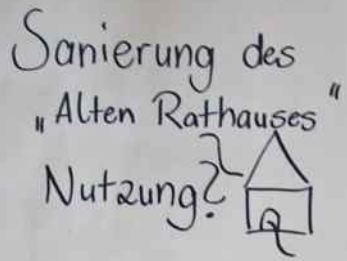 Sanierung des
„Alten Rathauses"
Nutzung?